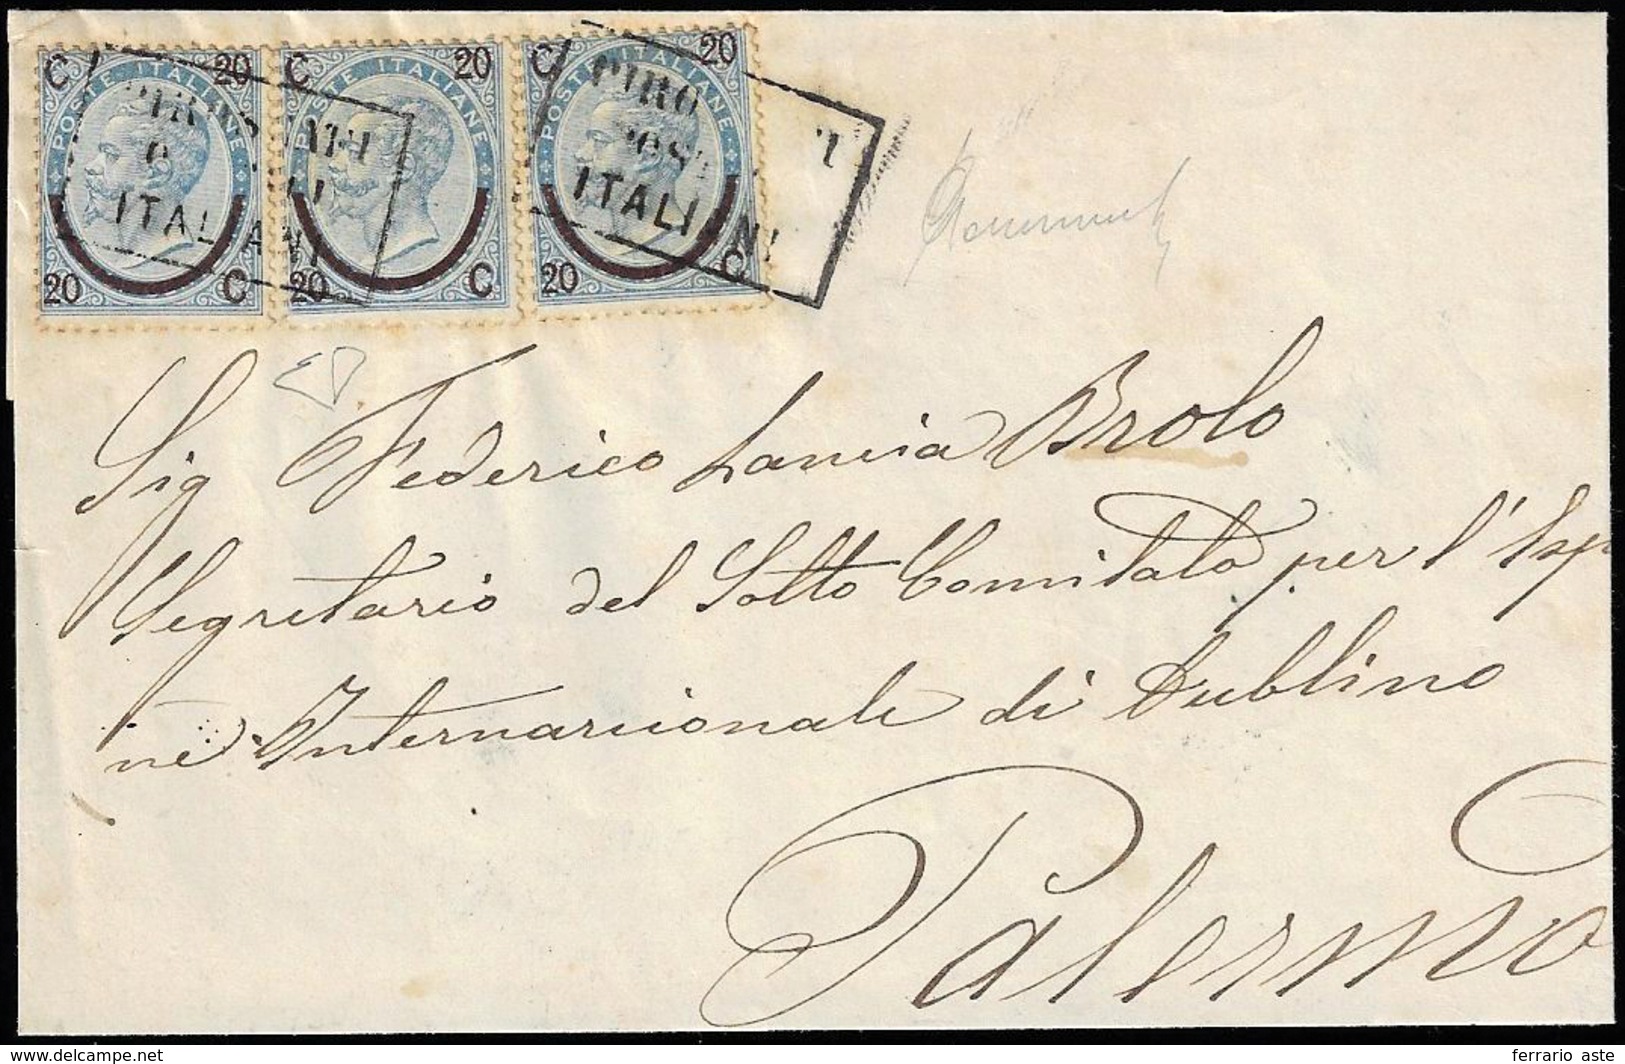 C 20 C 20 C 20
POSTE ITALIANE POSTE ITALIANE POSTE ITALIANE
PIRO
ITALIANI ITALIANI
20 C 20 C 20 C
Sig Federico Lancia Brolo
Segretario del Sotto Comitato per l'Isp
ne Internazionale di Dublino
Palermo
ferrario aste